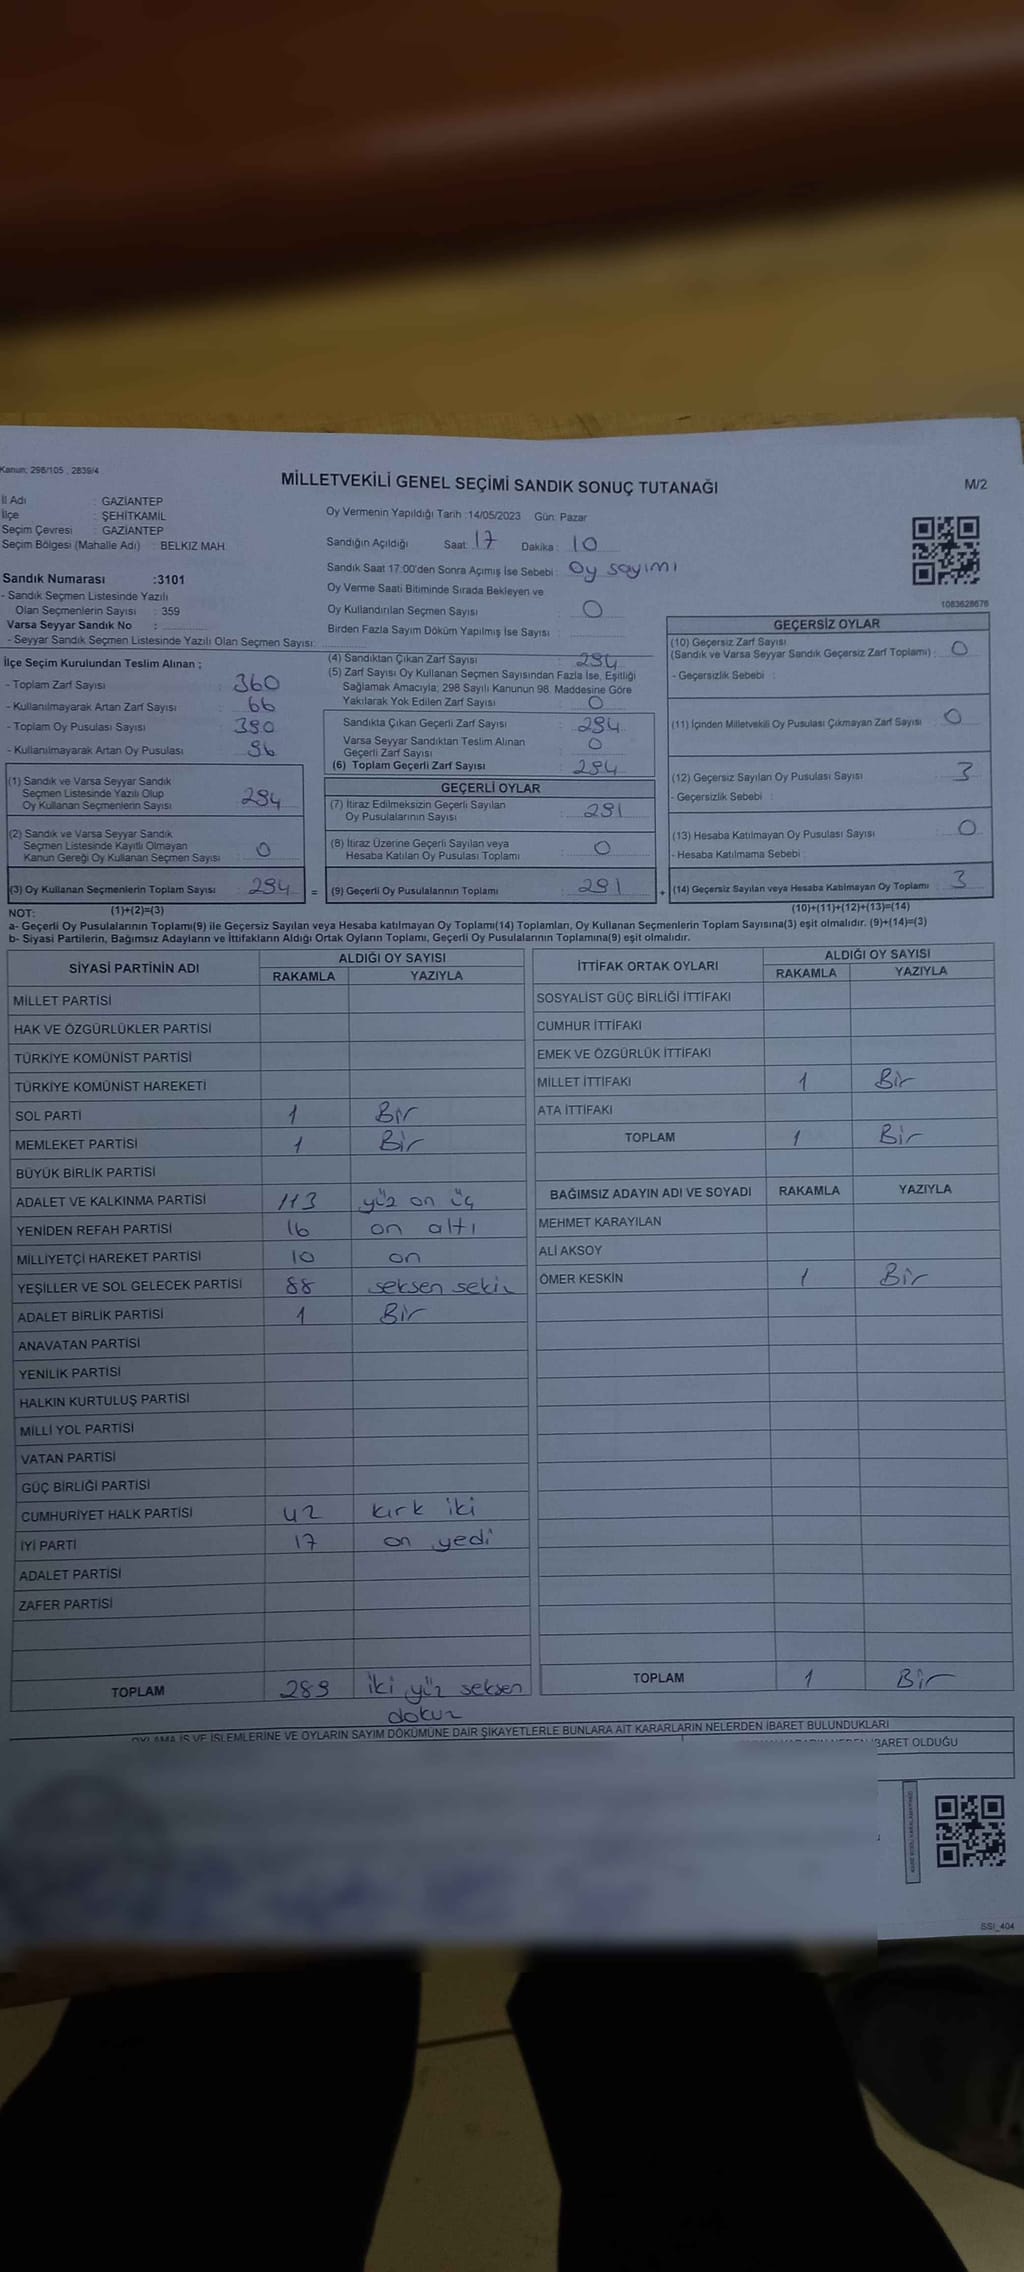 Kanun: 298/105 , 2839/4
MİLLETVEKİLİ GENEL SEÇİMİ SANDIK SONUÇ TUTANAĞI
M/2
İl Adı : GAZİANTEP
İlçe : ŞEHİTKAMİL
Seçim Çevresi : GAZİANTEP
Seçim Bölgesi (Mahalle Adı) : BELKIZ MAH.
Oy Vermenin Yapıldığı Tarih :14/05/2023 Gün: Pazar
Sandığın Açıldığı Saat: 17 Dakika : 10
Sandık Saat 17:00'den Sonra Açımış İse Sebebi : Oy sayımı
Oy Verme Saati Bitiminde Sırada Bekleyen ve
Oy Kullandırılan Seçmen Sayısı : 0
Birden Fazla Sayım Döküm Yapılmış İse Sayısı :
1083628676
Sandık Numarası :3101
- Sandık Seçmen Listesinde Yazılı
Olan Seçmenlerin Sayısı : 359
Varsa Seyyar Sandık No :
- Seyyar Sandık Seçmen Listesinde Yazılı Olan Seçmen Sayısı:
İlçe Seçim Kurulundan Teslim Alınan ;
- Toplam Zarf Sayısı : 360
- Kullanılmayarak Artan Zarf Sayısı : 66
- Toplam Oy Pusulası Sayısı : 390
- Kullanılmayarak Artan Oy Pusulası : 96
(1) Sandık ve Varsa Seyyar Sandık
Seçmen Listesinde Yazılı Olup
Oy Kullanan Seçmenlerin Sayısı : 294
(2) Sandık ve Varsa Seyyar Sandık
Seçmen Listesinde Kayıtlı Olmayan
Kanun Gereği Oy Kullanan Seçmen Sayısı : 0
(3) Oy Kullanan Seçmenlerin Toplam Sayısı : 294 =
(4) Sandıktan Çıkan Zarf Sayısı : 294
(5) Zarf Sayısı Oy Kullanan Seçmen Sayısından Fazla İse, Eşitliği
Sağlamak Amacıyla, 298 Sayılı Kanunun 98. Maddesine Göre
Yakılarak Yok Edilen Zarf Sayısı : 0
Sandıkta Çıkan Geçerli Zarf Sayısı : 294
Varsa Seyyar Sandıktan Teslim Alınan
Geçerli Zarf Sayısı : 0
(6) Toplam Geçerli Zarf Sayısı : 294
GEÇERLİ OYLAR
(7) İtiraz Edilmeksizin Geçerli Sayılan
Oy Pusulalarının Sayısı : 291
(8) İtiraz Üzerine Geçerli Sayılan veya
Hesaba Katılan Oy Pusulası Toplamı : 0
(9) Geçerli Oy Pusulalarının Toplamı : 291 +
GEÇERSİZ OYLAR
(10) Geçersiz Zarf Sayısı
(Sandık ve Varsa Seyyar Sandık Geçersiz Zarf Toplamı) : 0
- Geçersizlik Sebebi :
(11) İçinden Milletvekili Oy Pusulası Çıkmayan Zarf Sayısı : 0
(12) Geçersiz Sayılan Oy Pusulası Sayısı : 3
- Geçersizlik Sebebi :
(13) Hesaba Katılmayan Oy Pusulası Sayısı : 0
- Hesaba Katılmama Sebebi :
(14) Geçersiz Sayılan veya Hesaba Katılmayan Oy Toplamı : 3
NOT: (1)+(2)=(3)
(10)+(11)+(12)+(13)=(14)
a- Geçerli Oy Pusulalarının Toplamı(9) ile Geçersiz Sayılan veya Hesaba katılmayan Oy Toplamı(14) Toplamları, Oy Kullanan Seçmenlerin Toplam Sayısına(3) eşit olmalıdır. (9)+(14)=(3)
b- Siyasi Partilerin, Bağımsız Adayların ve İttifakların Aldığı Ortak Oyların Toplamı, Geçerli Oy Pusulalarının Toplamına(9) eşit olmalıdır.
SİYASİ PARTİNİN ADI
ALDIĞI OY SAYISI
RAKAMLA YAZIYLA
MİLLET PARTİSİ
HAK VE ÖZGÜRLÜKLER PARTİSİ
TÜRKİYE KOMÜNİST PARTİSİ
TÜRKİYE KOMÜNİST HAREKETİ
SOL PARTİ 1 Bir
MEMLEKET PARTİSİ 1 Bir
BÜYÜK BİRLİK PARTİSİ
ADALET VE KALKINMA PARTİSİ 113 yüz on üç
YENİDEN REFAH PARTİSİ 16 on altı
MİLLİYETÇİ HAREKET PARTİSİ 10 on
YEŞİLLER VE SOL GELECEK PARTİSİ 88 seksen sekiz
ADALET BİRLİK PARTİSİ 1 Bir
ANAVATAN PARTİSİ
YENİLİK PARTİSİ
HALKIN KURTULUŞ PARTİSİ
MİLLİ YOL PARTİSİ
VATAN PARTİSİ
GÜÇ BİRLİĞİ PARTİSİ
CUMHURİYET HALK PARTİSİ 42 kırk iki
İYİ PARTİ 17 on yedi
ADALET PARTİSİ
ZAFER PARTİSİ
TOPLAM 289 iki yüz seksen
dokuz
İTTİFAK ORTAK OYLARI
ALDIĞI OY SAYISI
RAKAMLA YAZIYLA
SOSYALİST GÜÇ BİRLİĞİ İTTİFAKI
CUMHUR İTTİFAKI
EMEK VE ÖZGÜRLÜK İTTİFAKI
MİLLET İTTİFAKI 1 Bir
ATA İTTİFAKI
TOPLAM 1 Bir
BAĞIMSIZ ADAYIN ADI VE SOYADI RAKAMLA YAZIYLA
MEHMET KARAYILAN
ALİ AKSOY
ÖMER KESKİN 1 Bir
TOPLAM 1 Bir
OYLAMA İŞ VE İŞLEMLERİNE VE OYLARIN SAYIM DÖKÜMÜNE DAİR ŞİKAYETLERLE BUNLARA AİT KARARLARIN NELERDEN İBARET BULUNDUKLARI
İBARET OLDUĞU
SSI_404